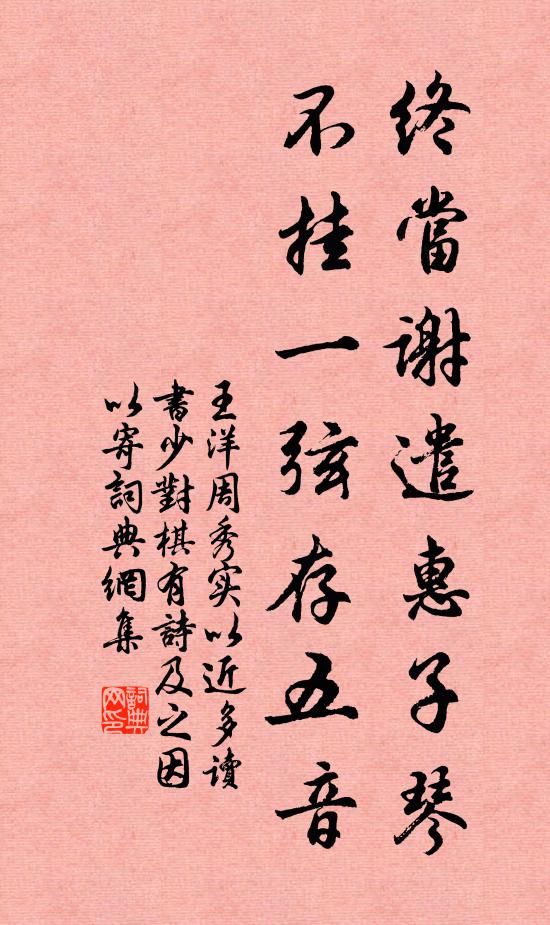 終當謝遣惠子琴
不挂一弦存五音
王洋周秀实以近多讀
書少對棋有詩及之因
以寄詞典網集
詞典網印